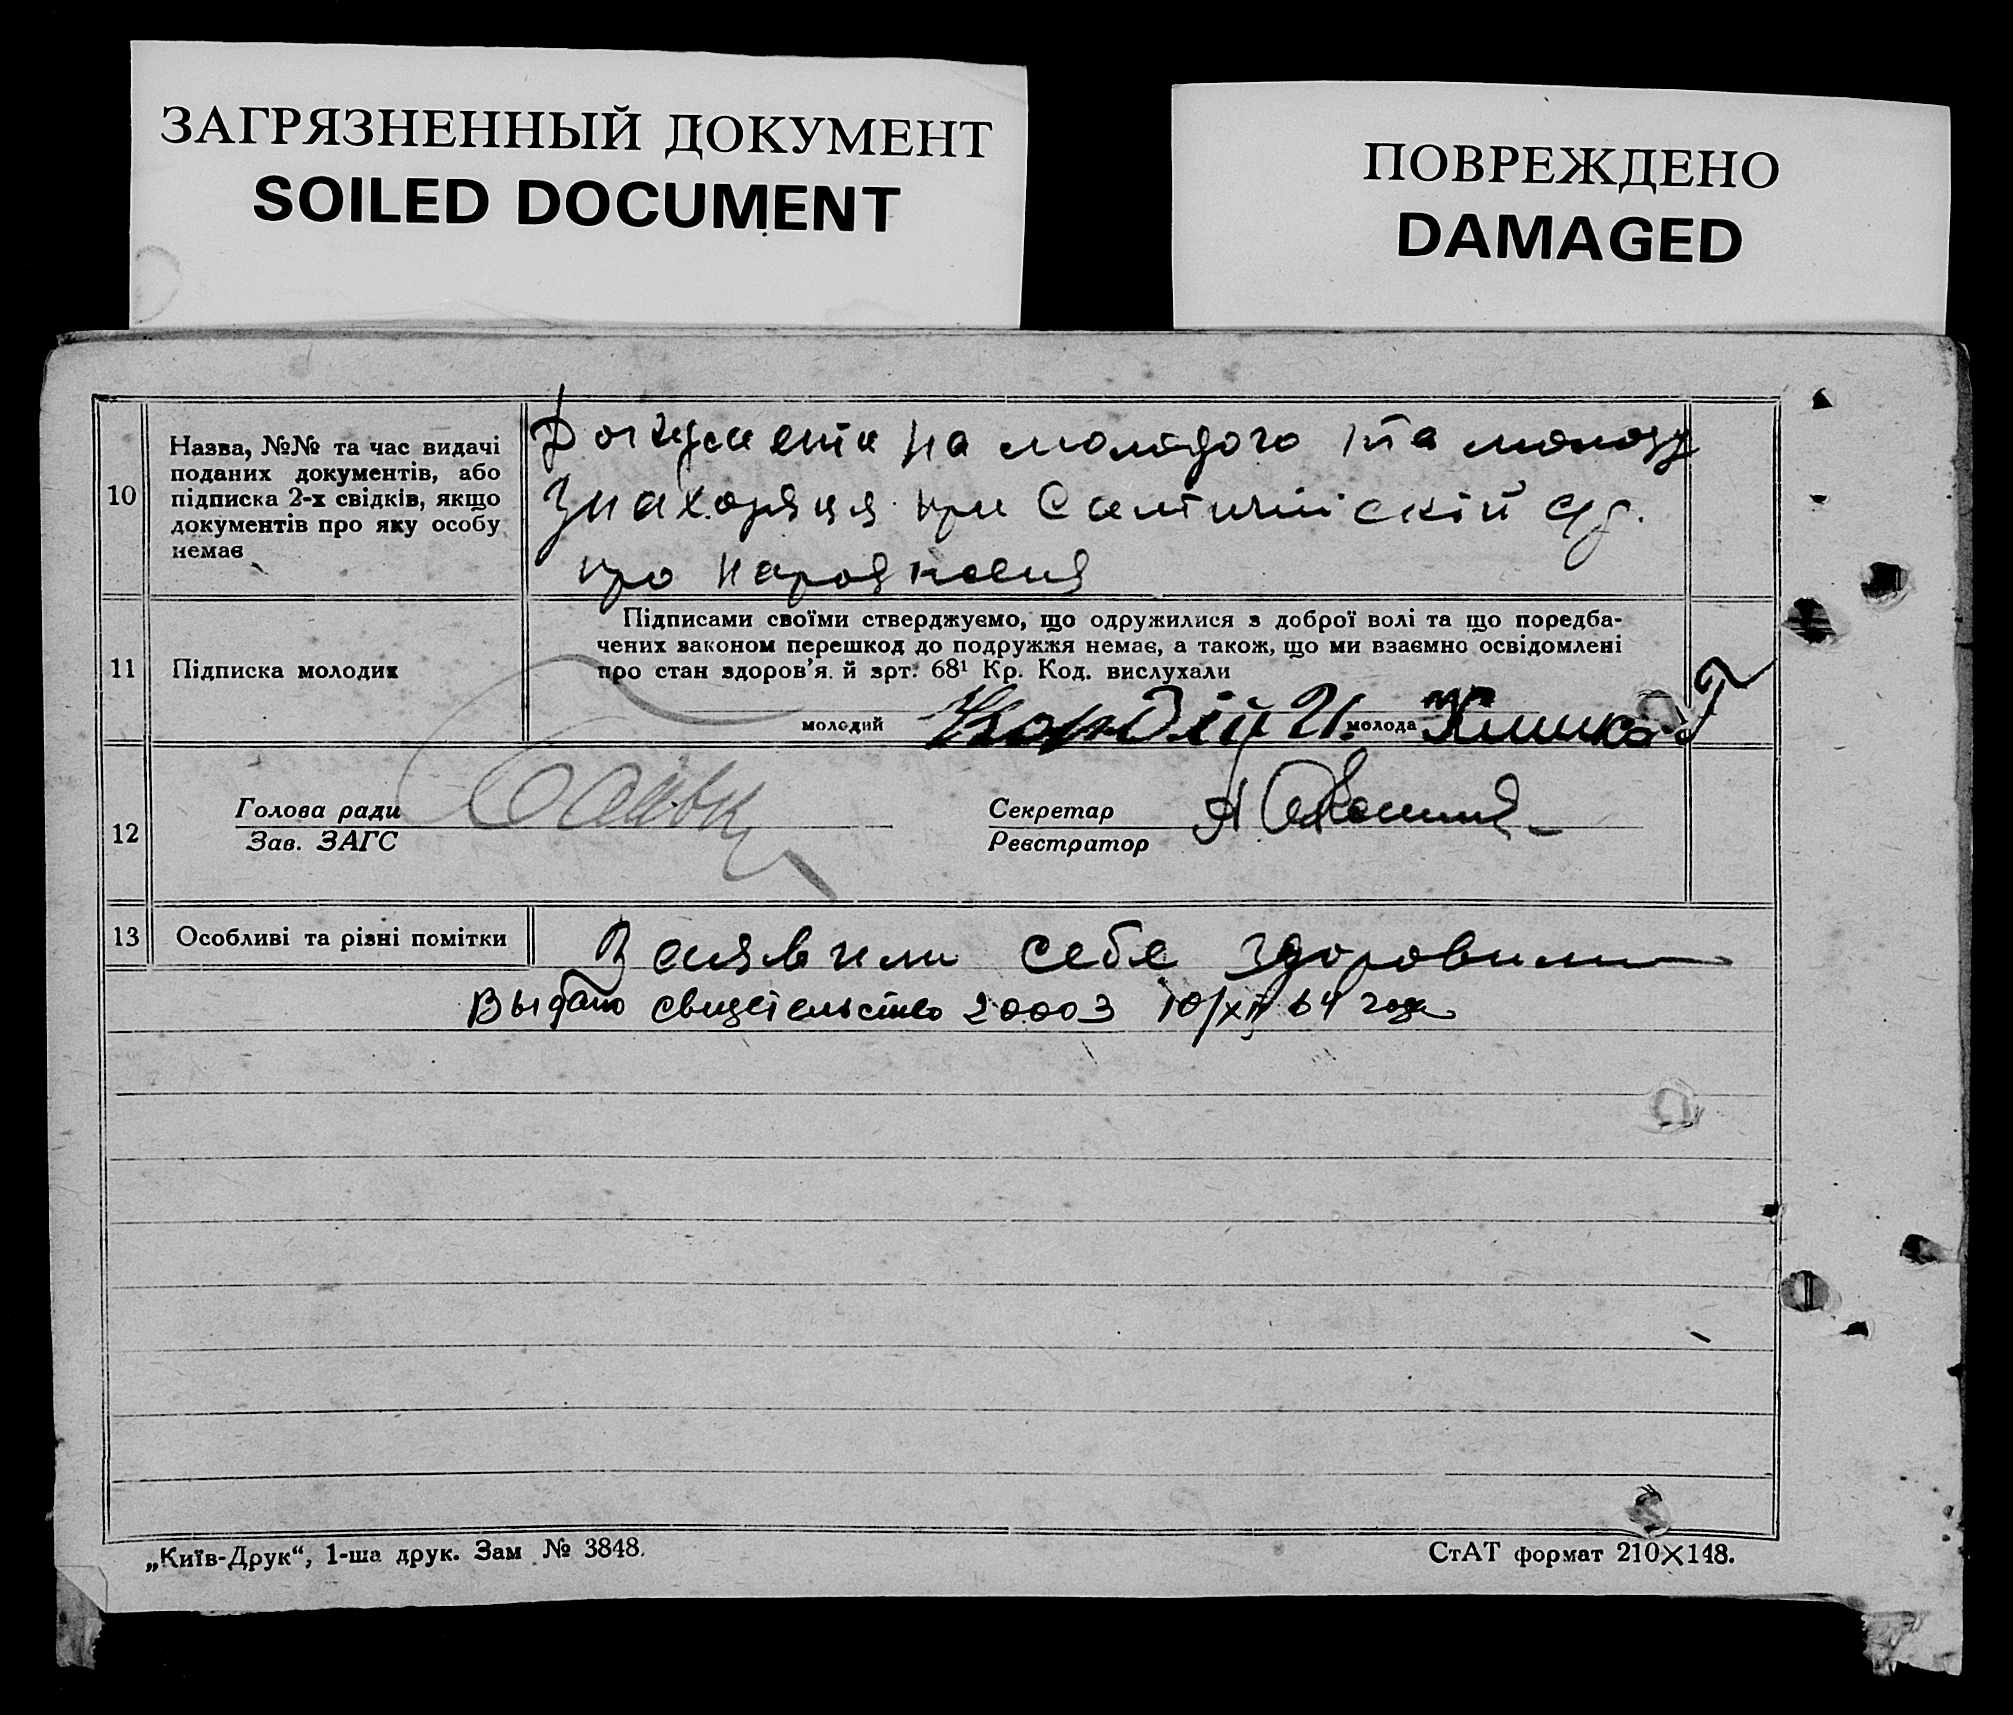 ЗАГРЯЗНЕННЫЙ ДОКУМЕНТ
SOILED DOCUMENT
ПОВРЕЖДЕНО
DAMAGED
10
Назва, №№ та час видачі
поданих документів, або
підписка 2-х свідків, якщо
документів про яку особу
немає
Документи на молодого та молоду
Знаходяця при
про
11
Підписка молодих
Підписами своїми стверджуємо, що одружилися з доброї волі та що поредба-
чених законом перешкод до подружжя немає, а також, що ми взаємно освідомлені
про стан здоров'я. й зрт. 68¹ Кр. Код. вислухали
молодий
молода
12
Голова ради
Зав. ЗАГС
Секретар
Реєстратор
13
Особливі та різні помітки
Заявили себе здоровими
Выдано свидетельство 20003 10/XII 64 года
„Київ-Друк“, 1-ша друк. Зам № 3848.
СтАТ формат 210×148.